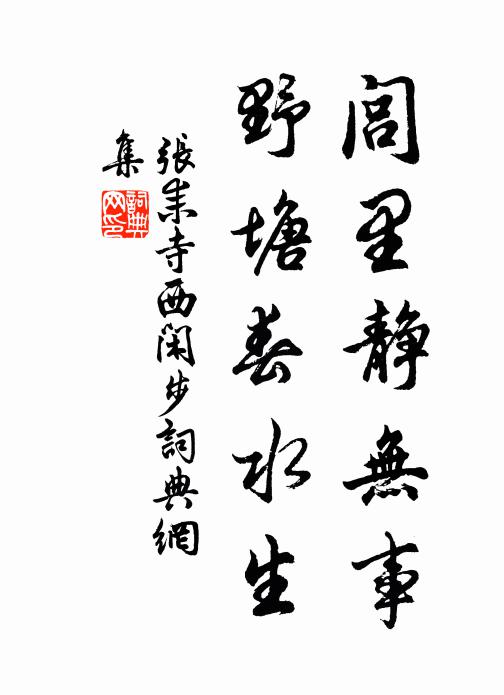 閭里静無事
野塘春水生
張耒寺西闲步詞典網
集
詞典
网印